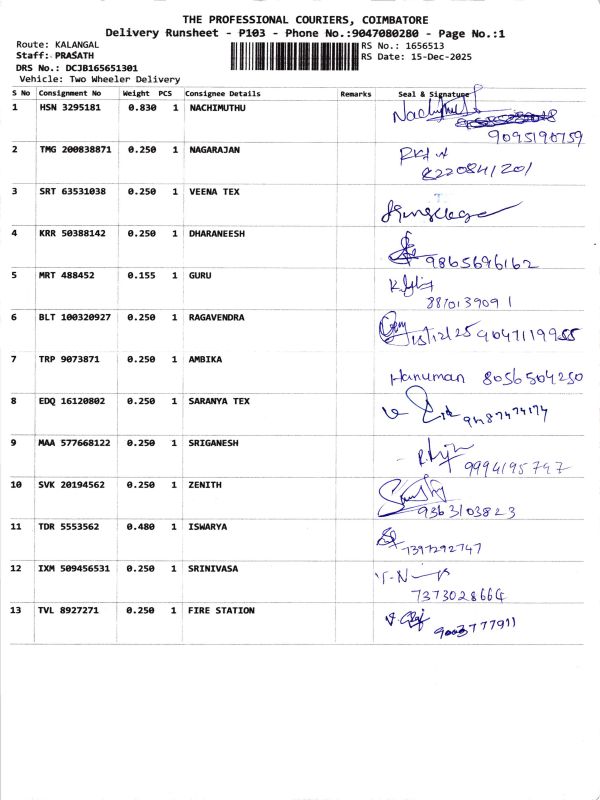 THE PROFESSIONAL COURIERS, COIMBATORE
Delivery Runsheet - P103 - Phone No.:9047080280 - Page No.:1
Route: KALANGAL
Staff: PRASATH
DRS No.: DCJB165651301
Vehicle: Two Wheeler Delivery
RS No.: 1656513
RS Date: 15-Dec-2025
S No Consignment No Weight PCS Consignee Details Remarks Seal & Signature
1 HSN 3295181 0.830 1 NACHIMUTHU
9095190759
2 TMG 200838871 0.250 1 NAGARAJAN
8220841201
3 SRT 63531038 0.250 1 VEENA TEX
4 KRR 50388142 0.250 1 DHARANEESH
9865696162
5 MRT 488452 0.155 1 GURU
8870139091
6 BLT 100320927 0.250 1 RAGAVENDRA
15/12/25 9047119955
7 TRP 9073871 0.250 1 AMBIKA
Hanuman 8056504250
8 EDQ 16120802 0.250 1 SARANYA TEX
9487474174
9 MAA 577668122 0.250 1 SRIGANESH
9994195747
10 SVK 20194562 0.250 1 ZENITH
9363103823
11 TDR 5553562 0.480 1 ISWARYA
7397292747
12 IXM 509456531 0.250 1 SRINIVASA
7373028664
13 TVL 8927271 0.250 1 FIRE STATION
9003777911